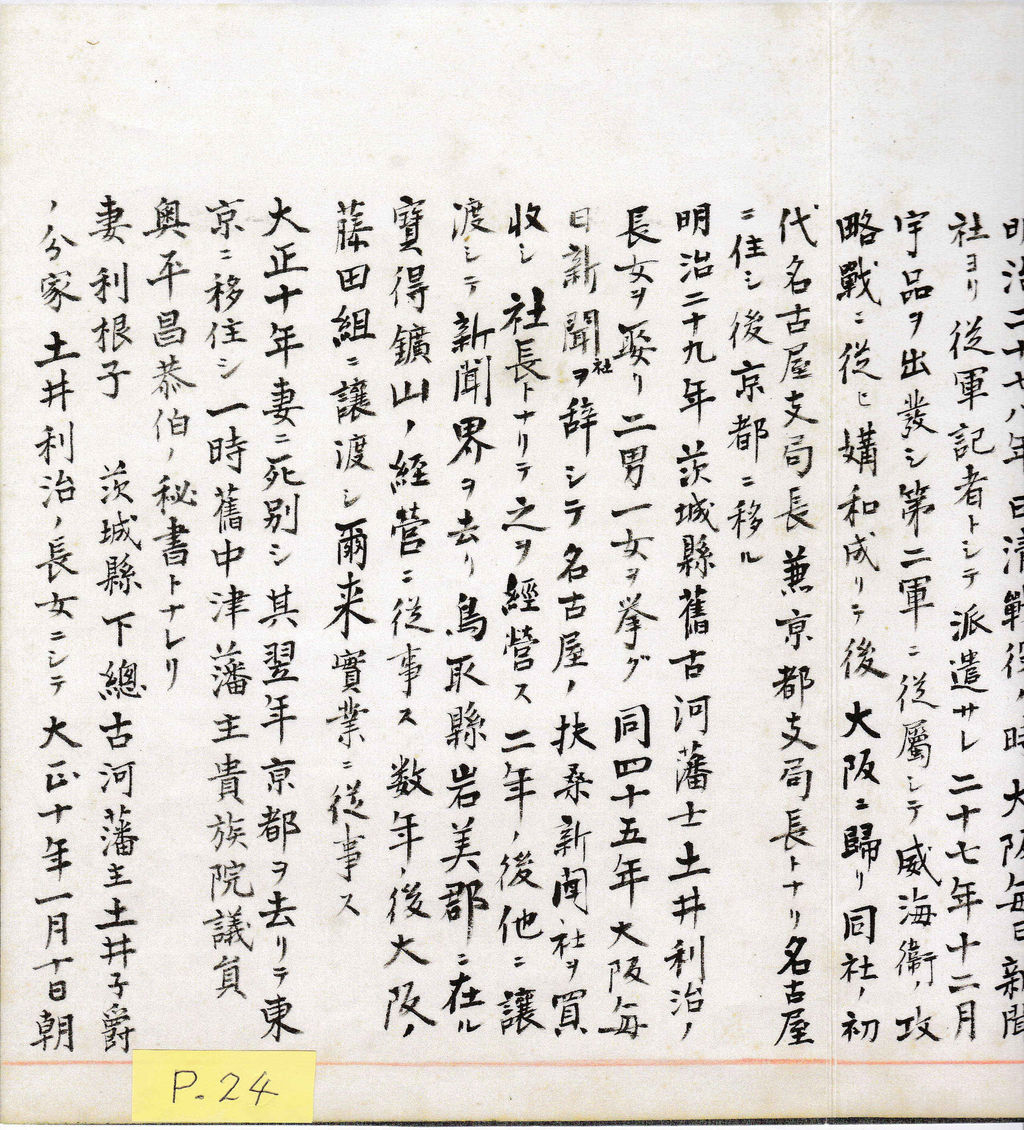 明治二十七八年日清戰役ノ時大阪毎日新聞
社ヨリ従軍記者トシテ派遣サレ二十七年十二月
宇品ヲ出發シ第二軍ニ従屬シテ威海衞ノ攻
略戰ニ従ヒ媾和成リテ後大阪ニ歸リ同社ノ初
代名古屋支局長兼京都支局長トナリ名古屋
ニ住シ後京都ニ移ル
明治二十九年茨城縣舊古河藩士土井利治ノ
長女ヲ娶リ二男一女ヲ挙グ 同四十五年大阪毎
日新聞社ヲ辞シテ名古屋ノ扶桑新聞社ヲ買
收シ社長トナリテ之ヲ經營ス二年ノ後他ニ讓
渡シテ新聞界ヲ去リ鳥取縣岩美郡ニ在ル
寶得鑛山ノ経営ニ従事ス数年ノ後大阪ノ
藤田組ニ讓渡シ爾来實業ニ従事ス
大正十年妻ニ死別シ其翌年京都ヲ去リテ東
京ニ移住シ一時舊中津藩主貴族院議員
奥平昌恭伯ノ秘書トナレリ
妻利根子 茨城縣下總古河藩主土井子爵
ノ分家土井利治ノ長女ニシテ大正十年一月十日朝
P.24